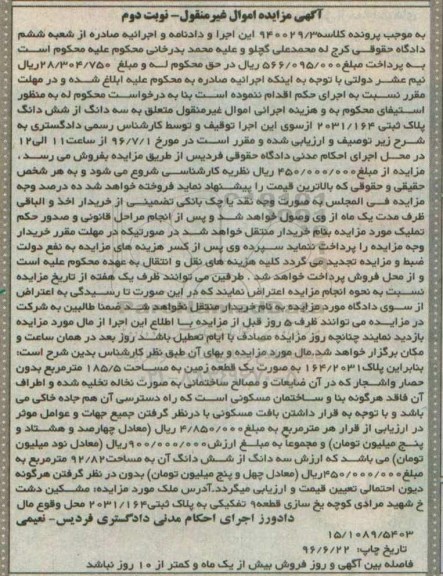 آگهی مزایده اموال غیرمنقول- نوبت دوم
به موجب پرونده کلاسه۹۴۰۰۲۹/۳ این اجرا و دادنامه و اجرائیه صادره از شعبه ششم
دادگاه حقوقی کرج له محمدعلی کچلو و علیه محمد بدرخانی محکوم علیه محکوم است
به پرداخت مبلغ۵۶۶/۰۹۵/۰۰۰ ریال در حق محکوم له و مبلغ ۲۸/۳۰۴/۷۵۰ریال
نیم عشر دولتی با توجه به اینکه اجرائیه صادره به محکوم علیه ابلاغ شده و در مهلت
مقرر نسبت به اجرای حکم اقدام ننموده است بنا به درخواست محکوم له به منظور
استیفای محکوم به و هزینه اجرائی اموال غیرمنقول متعلق به سه دانگ از شش دانگ
پلاک ثبتی ۲۰۳۱/۱۶۴ ازسوی این اجرا توقیف و توسط کارشناس رسمی دادگستری به
شرح زیر توصیف و ارزیابی شده و مقرر است در مورخ ۹۶/۷/۱ از ساعت۱۱ الی۱۲
در محل اجرای احکام مدنی دادگاه حقوقی فردیس از طریق مزایده بفروش می رسد .
مزایده از مبلغ۴۵۰/۰۰۰/۰۰۰ ریال نظریه کارشناسی شروع می شود و به هر شخص
حقیقی و حقوقی که بالاترین قیمت را پیشنهاد نماید فروخته خواهد شد ده درصد وجه
مزایده فی المجلس به صورت وجه نقد یا چک بانکی تضمینی از خریدار اخذ و الباقی
ظرف مدت یک ماه از وی وصول خواهد شد و پس از انجام مراحل قانونی و صدور حکم
تملیک مورد مزایده بنام خریدار منتقل خواهد شد در صورتیکه در مهلت مقرر خریدار
وجه مزایده را پرداخت ننماید سپرده وی پس از کسر هزینه های مزایده به نفع دولت
ضبط و مزایده تجدید می گردد کلیه هزینه های نقل و انتقال به عهده محکوم علیه است
و از محل فروش پرداخت خواهد شد . طرفین می توانند ظرف یک هفته از تاریخ مزایده
نسبت به نحوه انجام مزایده اعتراض نمایند که در این صورت تا رسیدگی به اعتراض
از سوی دادگاه مورد مزایده به نام خریدار منتقل نخواهد شد ضمنا طالبین به شرکت
در مزایده می توانند ظرف ۵ روز قبل از مزایده با اطلاع این اجرا از مال مورد مزایده
بازدید نمایند چنانچه روز مزایده مصادف با ایام تعطیل باشد روز بعد در همان ساعت و
مکان برگزار خواهد شد.مال مورد مزایده و بهای آن طبق نظر کارشناس بدین شرح است:
بنابراین پلاک ۱۶۴/۲۰۳۱ به صورت یک قطعه زمین به مساحت ۱۸۵/۵ مترمربع بدون
حصار واشجار که در آن ضایعات و مصالح ساختمانی به صورت نخاله تخلیه شده و اطراف
آن فاقد هرگونه بنا و ساختمان مسکونی است که راه دسترسی آن هم جاده خاکی می
باشد و با توجه به قرار داشتن بافت مسکونی با درنظر گرفتن جمیع جهات و عوامل موثر
در ارزیابی از قرار هر مترمربع به مبلغ۴/۸۵۰/۰۰۰ ریال (معادل چهارصد و هشتاد و
پنج میلیون تومان) و مجموعا به مبلغ ارزش۹۰۰/۰۰۰/۰۰۰ریال (معادل نود میلیون
تومان) می باشد که ارزش سه دانگ از شش دانگ آن به مساحت۹۲/۸۲ مترمربع به
مبلغ۴۵۰/۰۰۰/۰۰۰ریال (معادل چهل و پنج میلیون تومان) بدون در نظر گرفتن هرگونه
دیون احتمالی تعیین قیمت و ارزیابی میگردد.آدرس ملک مورد مزایده: مشکین دشت
خ شهید مرادی کوچه یخ سازی قطعه۹ تفکیکی به پلاک ثبتی۲۰۳۱/۱۶۴ محل وقوع مال
دادورز اجرای احکام مدنی دادگستری فردیس- نعیمی
۱۵/۱۰۸۹/۵۴۰۳
تاریخ چاپ: ۹۶/۶/۲۲
فاصله بین آگهی و روز فروش بیش از یک ماه و کمتر از ۱۰ روز نباشد